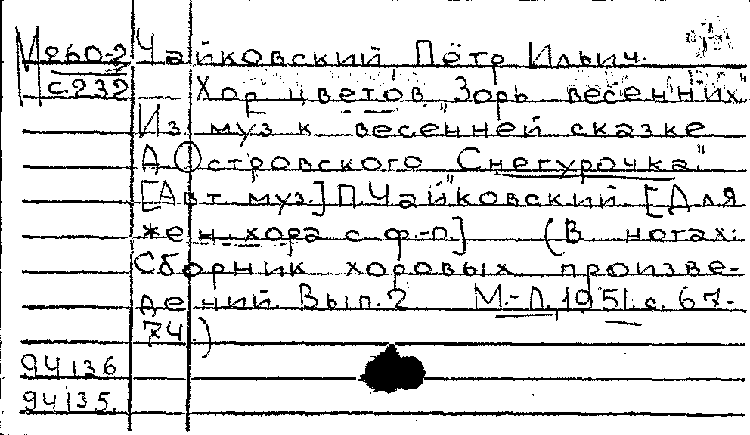 М260-2 Чайковский Пётр Ильич.
с232 Хор цветов "Зорь весенних"
Из муз к весенней сказке
А Островского "Снегурочка"
[Авт муз.] П.Чайковский. [Для
жен. хора с ф-п.] (В нотах:
Сборник хоровых произве-
дений. Вып. 2 М.-Л, 1951. с. 67-
74)
94136
94135.